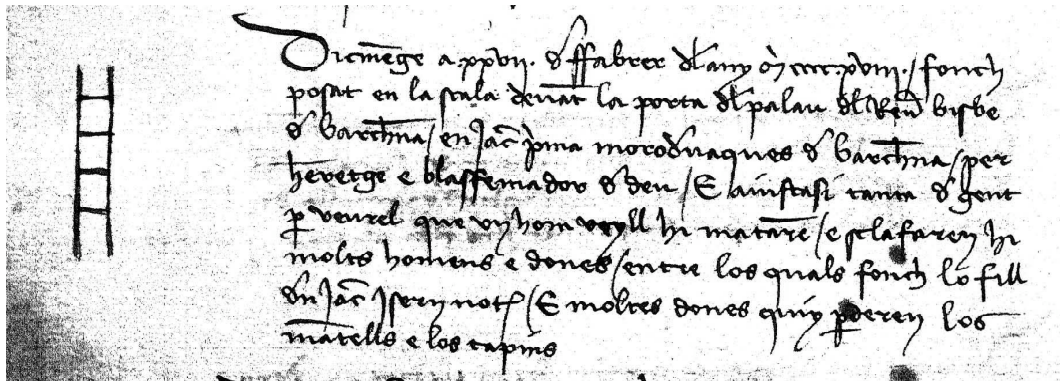 Dicmēge a .xxvii. d ffabrer dl any M cccc. xviii. / fonch
posat en la scala deuāt la porta dl palau dl Reuē bisbe
d barchna / en Jac pina d barchna / per
heretge e blasffemador d deu / E aiustasi tanta d gent
p veurel que vn hom veyll hi matarē / e sclafaren hi
molts homens e dones / entre los quals fonch lo fill
dn Jac not / E moltes dones quiy pderen los
mātells e los tapins